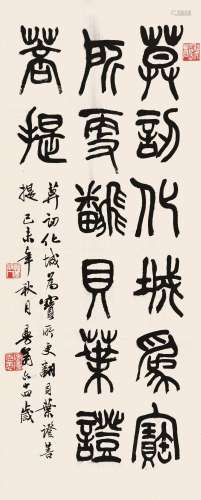 莫訒化城爲寶
所更翻貝葉證
菩提
莫訒化城為寶所更翻貝葉證菩
提己未年秋月歲